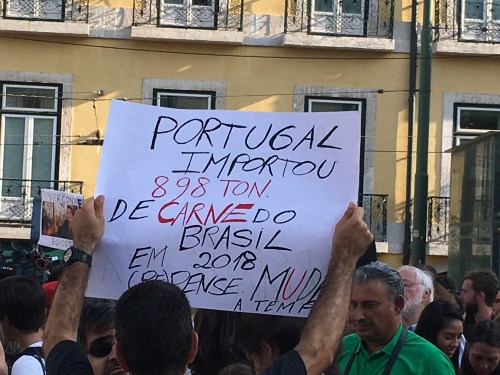 PORTUGAL
IMPORTOU
898 TON.
DE CARNE DO
BRASIL
EM 2018
(RE)PENSE MUDE
A TEMPO